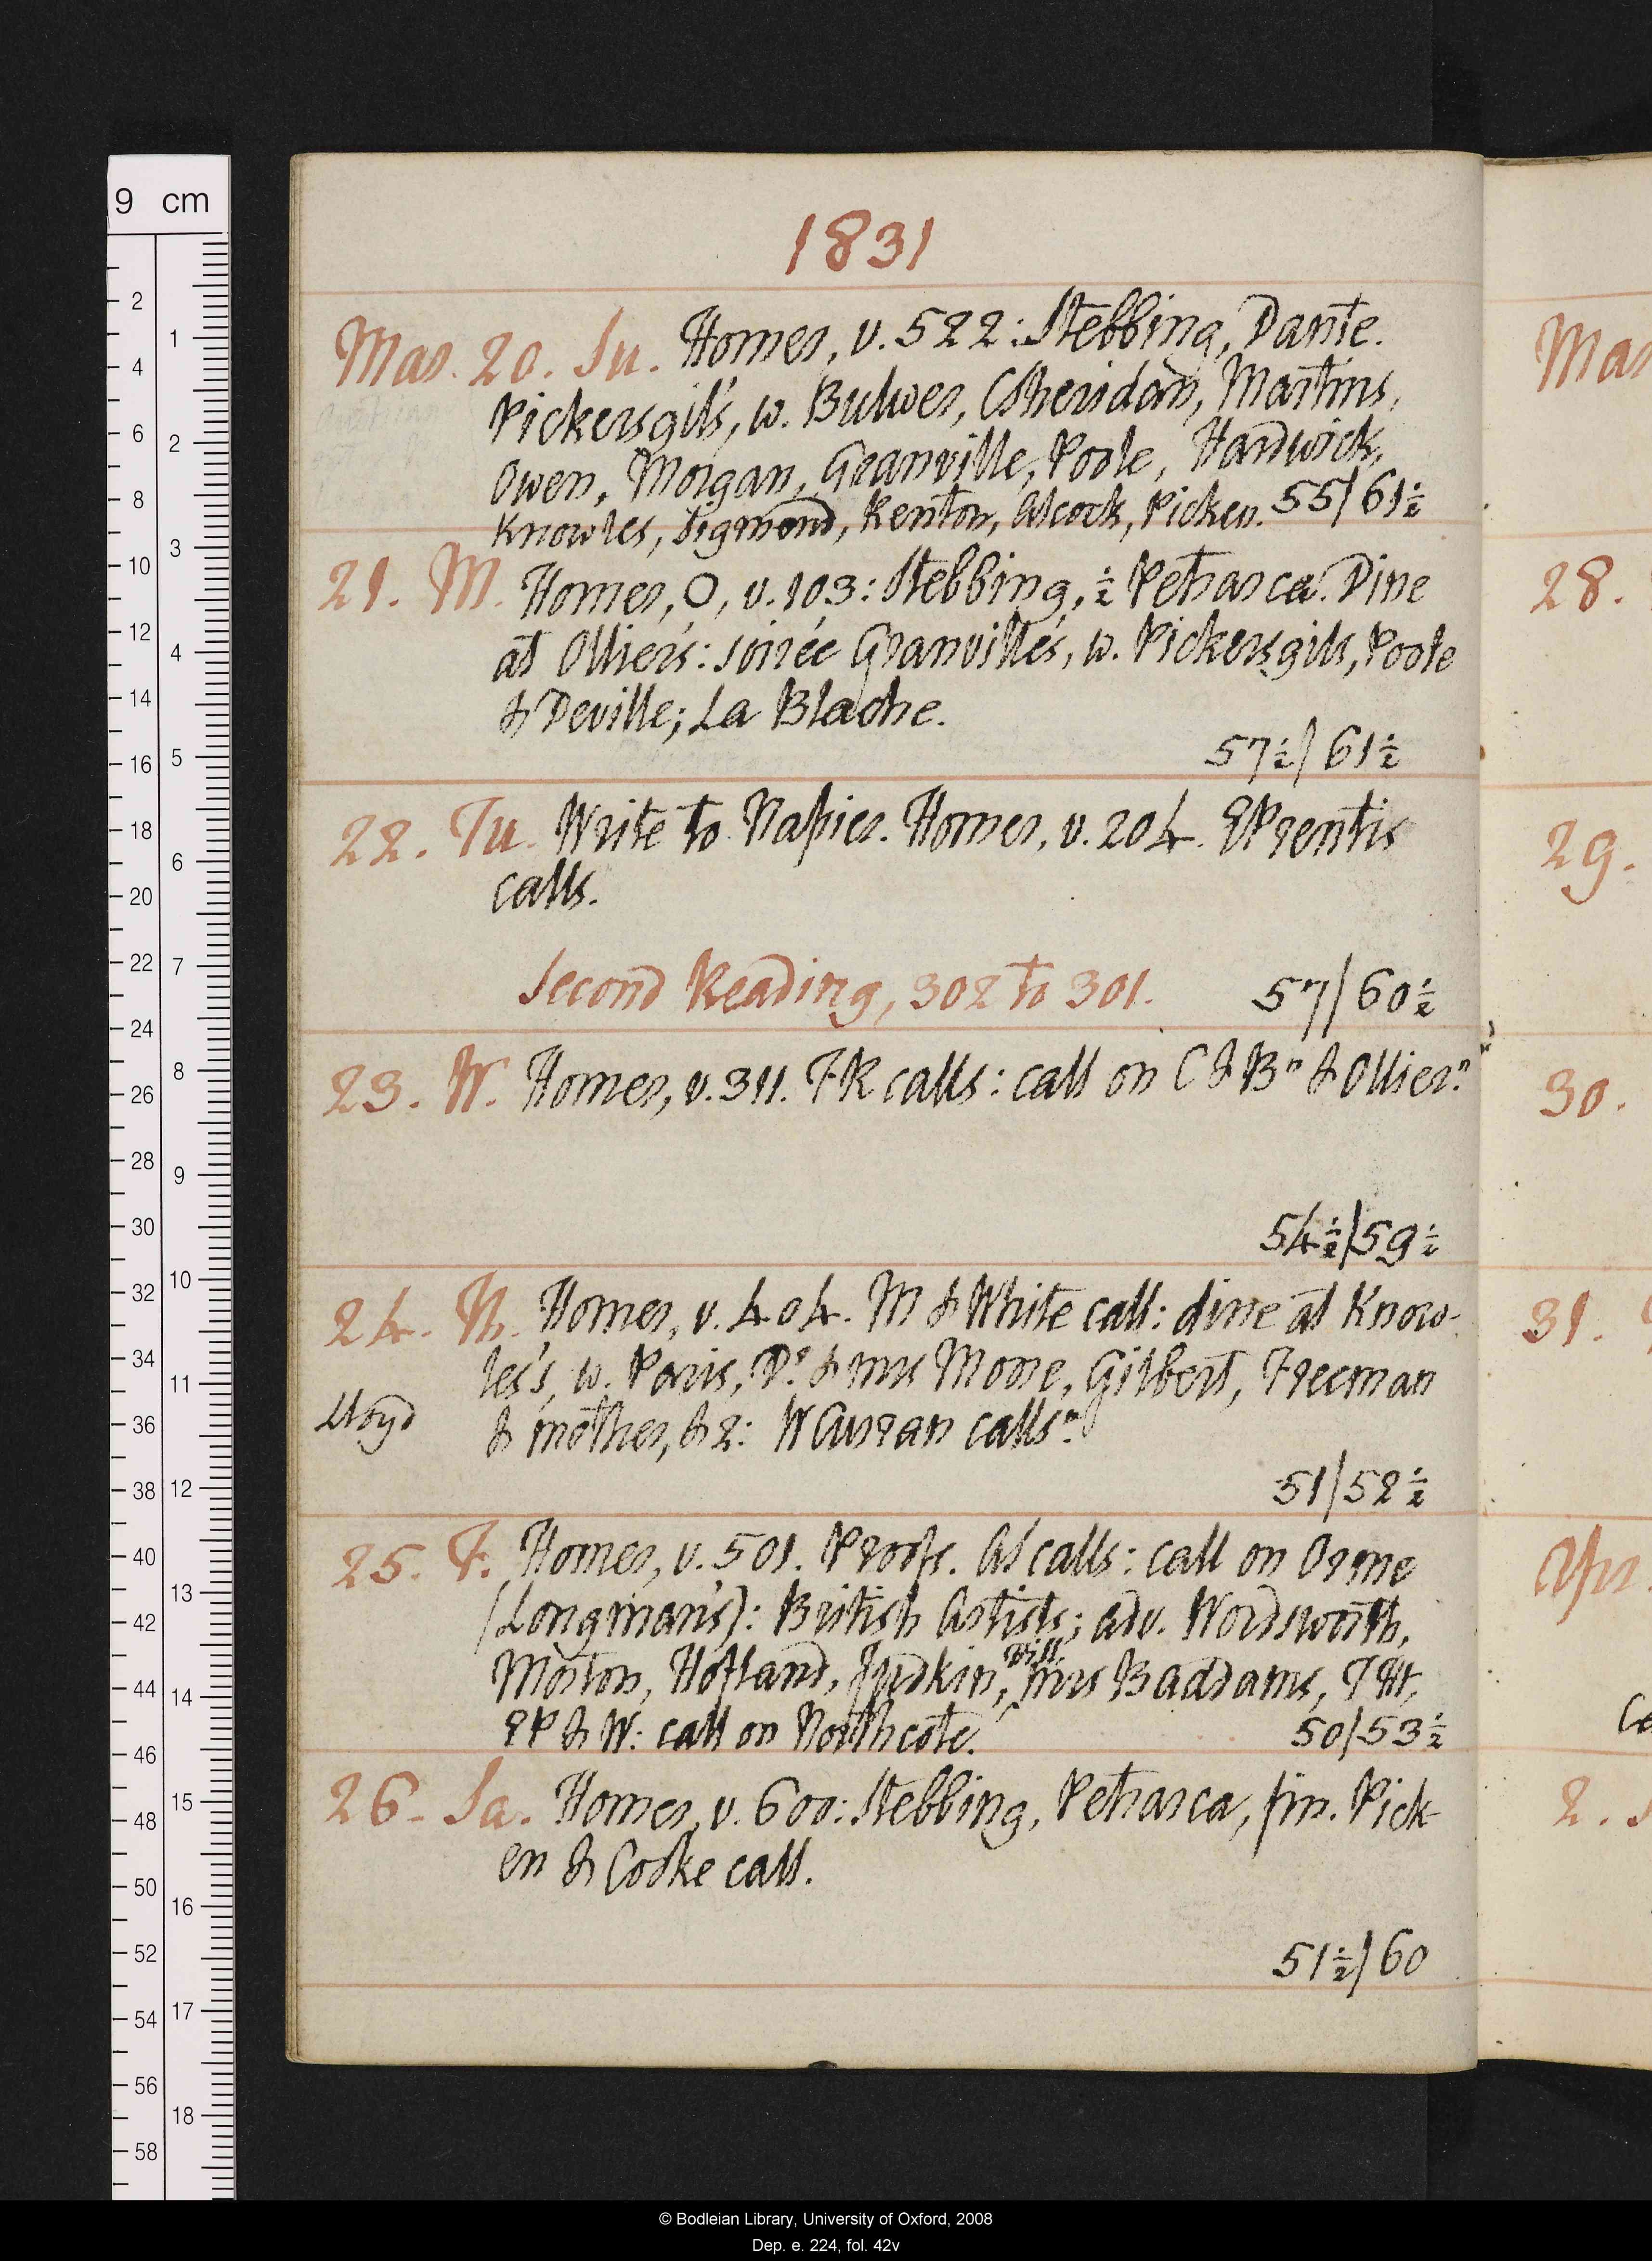 1831
Mar. 20. Su. Homer, v. 522: Stebbing, Dante.
Pickersgil's, w. Bulwer, CSheridan, Martins,
Owen, Morgan, Granville, Poole, Hardwick,
Knowles, Sigmond, Kenton, Alcock, Picken. 55/61½
21. M. Homer, O, v. 103: Stebbing, ½ Petrarca. Dine
at Ollier's: soirée Granville's, w. Pickersgils, Poole
& Deville; La Blache.
57½/61½
22. Tu. Write to Napier. Homer, v. 204. EPrentis
calls.
Second Reading, 302 to 301. 57/60½
23. W. Homer, v. 311. FK calls: call on C & Bn & Olliern.
54½/59½
24. Th. Homer, v. 404. M & White call: dine at Know-
les's, w. Paris, Dr & mrs Moore, Gilbert, Freeman
Lloyd
& mother, & 2: WCurran callsn.
51/52½
25. F. Homer, v. 501. Proofs. AS calls: call on Orme
(Longman's): British Artists; adv. Wordsworth,
Morton, Hofland, Judkin, Mrs Baddams, THt,
EP & W: call on Northcote. 50/53½
26. Sa. Homer, v. 600: Stebbing, Petrarca, fin. Pick-
en & Cooke call.
51½/60
Mar
28.
29.
30.
31.
Apr
2. S
9 cm
2
4
6
8
10
12
14
16
18
20
22
24
26
28
30
32
34
36
38
40
42
44
46
48
50
52
54
56
58
1
2
3
4
5
6
7
8
9
10
11
12
13
14
15
16
17
18
© Bodleian Library, University of Oxford, 2008
Dep. e. 224, fol. 42v